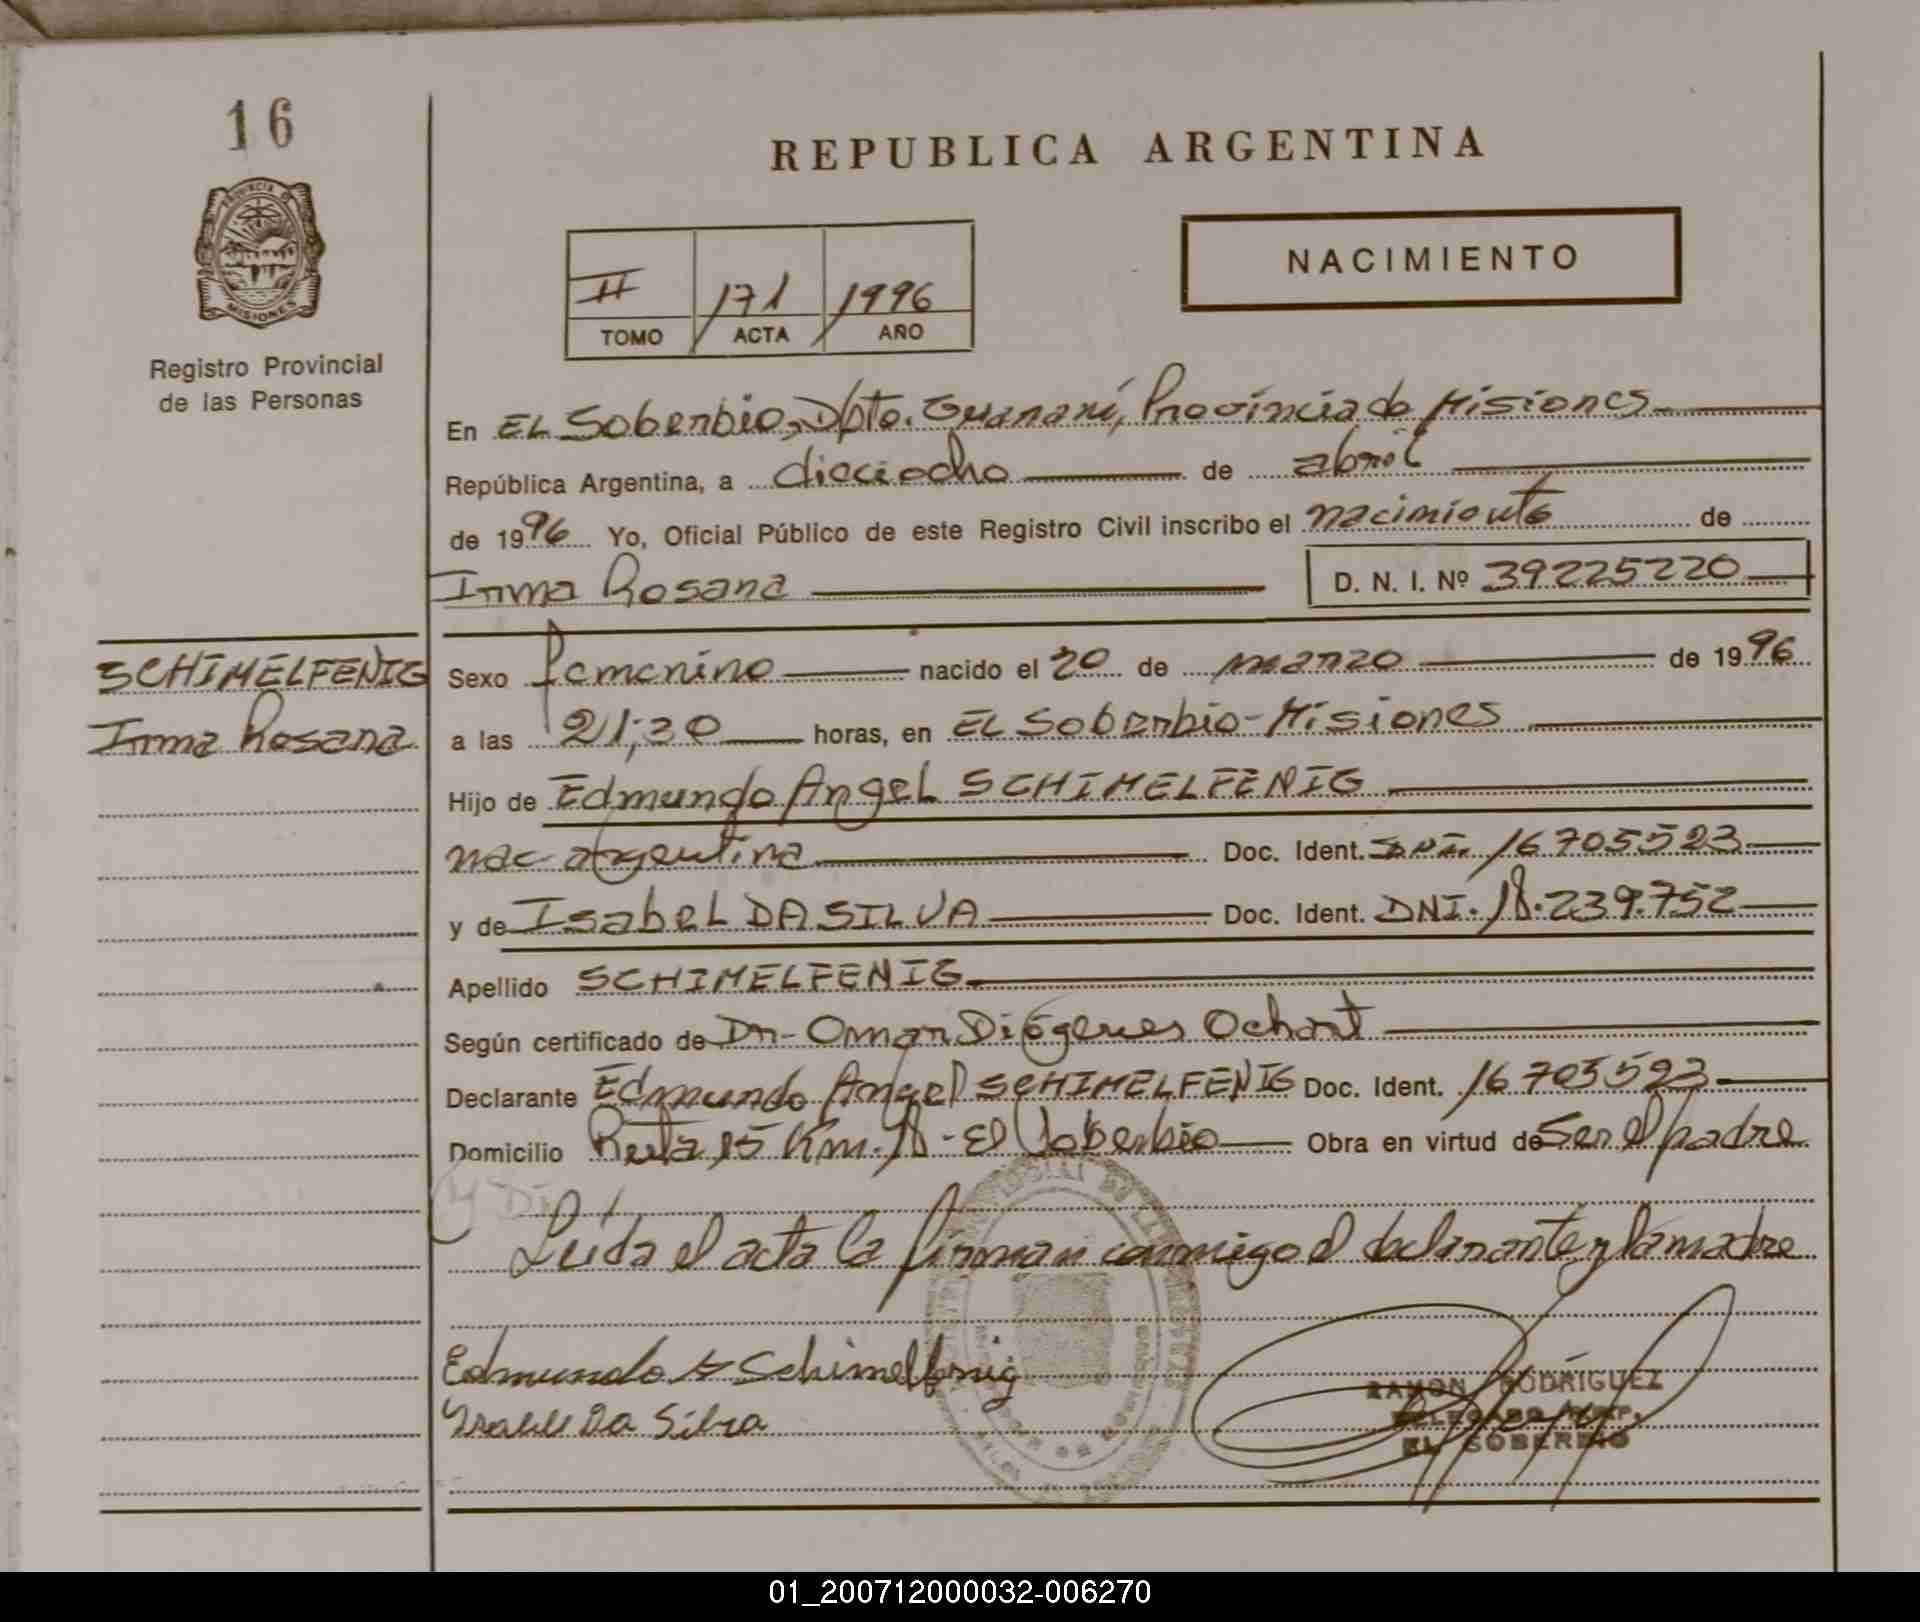 16
REPUBLICA ARGENTINA
PROVINCIA D
MISIONES
Registro Provincial
de las Personas
NACIMIENTO
II 171 1996
TOMO ACTA AÑO
En EL Soberbio, Dpto. Guaraní, Provincia de Misiones
República Argentina, a dieciocho de abril
de 1996 Yo, Oficial Público de este Registro Civil inscribo el nacimiento de
Irma Rosana D. N. I. Nº 39225220
SCHIMELFENIG
Irma Rosana
Sexo femenino nacido el 20 de marzo de 1996
a las 21;30 horas, en EL Soberbio-Misiones
Hijo de Edmundo Angel SCHIMELFENIG
nac argentina Doc. Ident. DNI. 16705523
y de Isabel DA SILVA Doc. Ident. DNI. 18.239.752
Apellido SCHIMELFENIG
Según certificado de Dr- Omar Diógenes Ochart
Declarante Edmundo Angel SCHIMELFENIG Doc. Ident. 16705523
Domicilio Ruta 15 Km. 18 - El Soberbio Obra en virtud de Ser el padre
Leída el acta la firman conmigo el declarante y la madre
Edmundo A Schimelfenig
Isabel Da Silva
RAMON RODRIGUEZ
DELEGADO
EL SOBERBIO
01_200712000032-006270